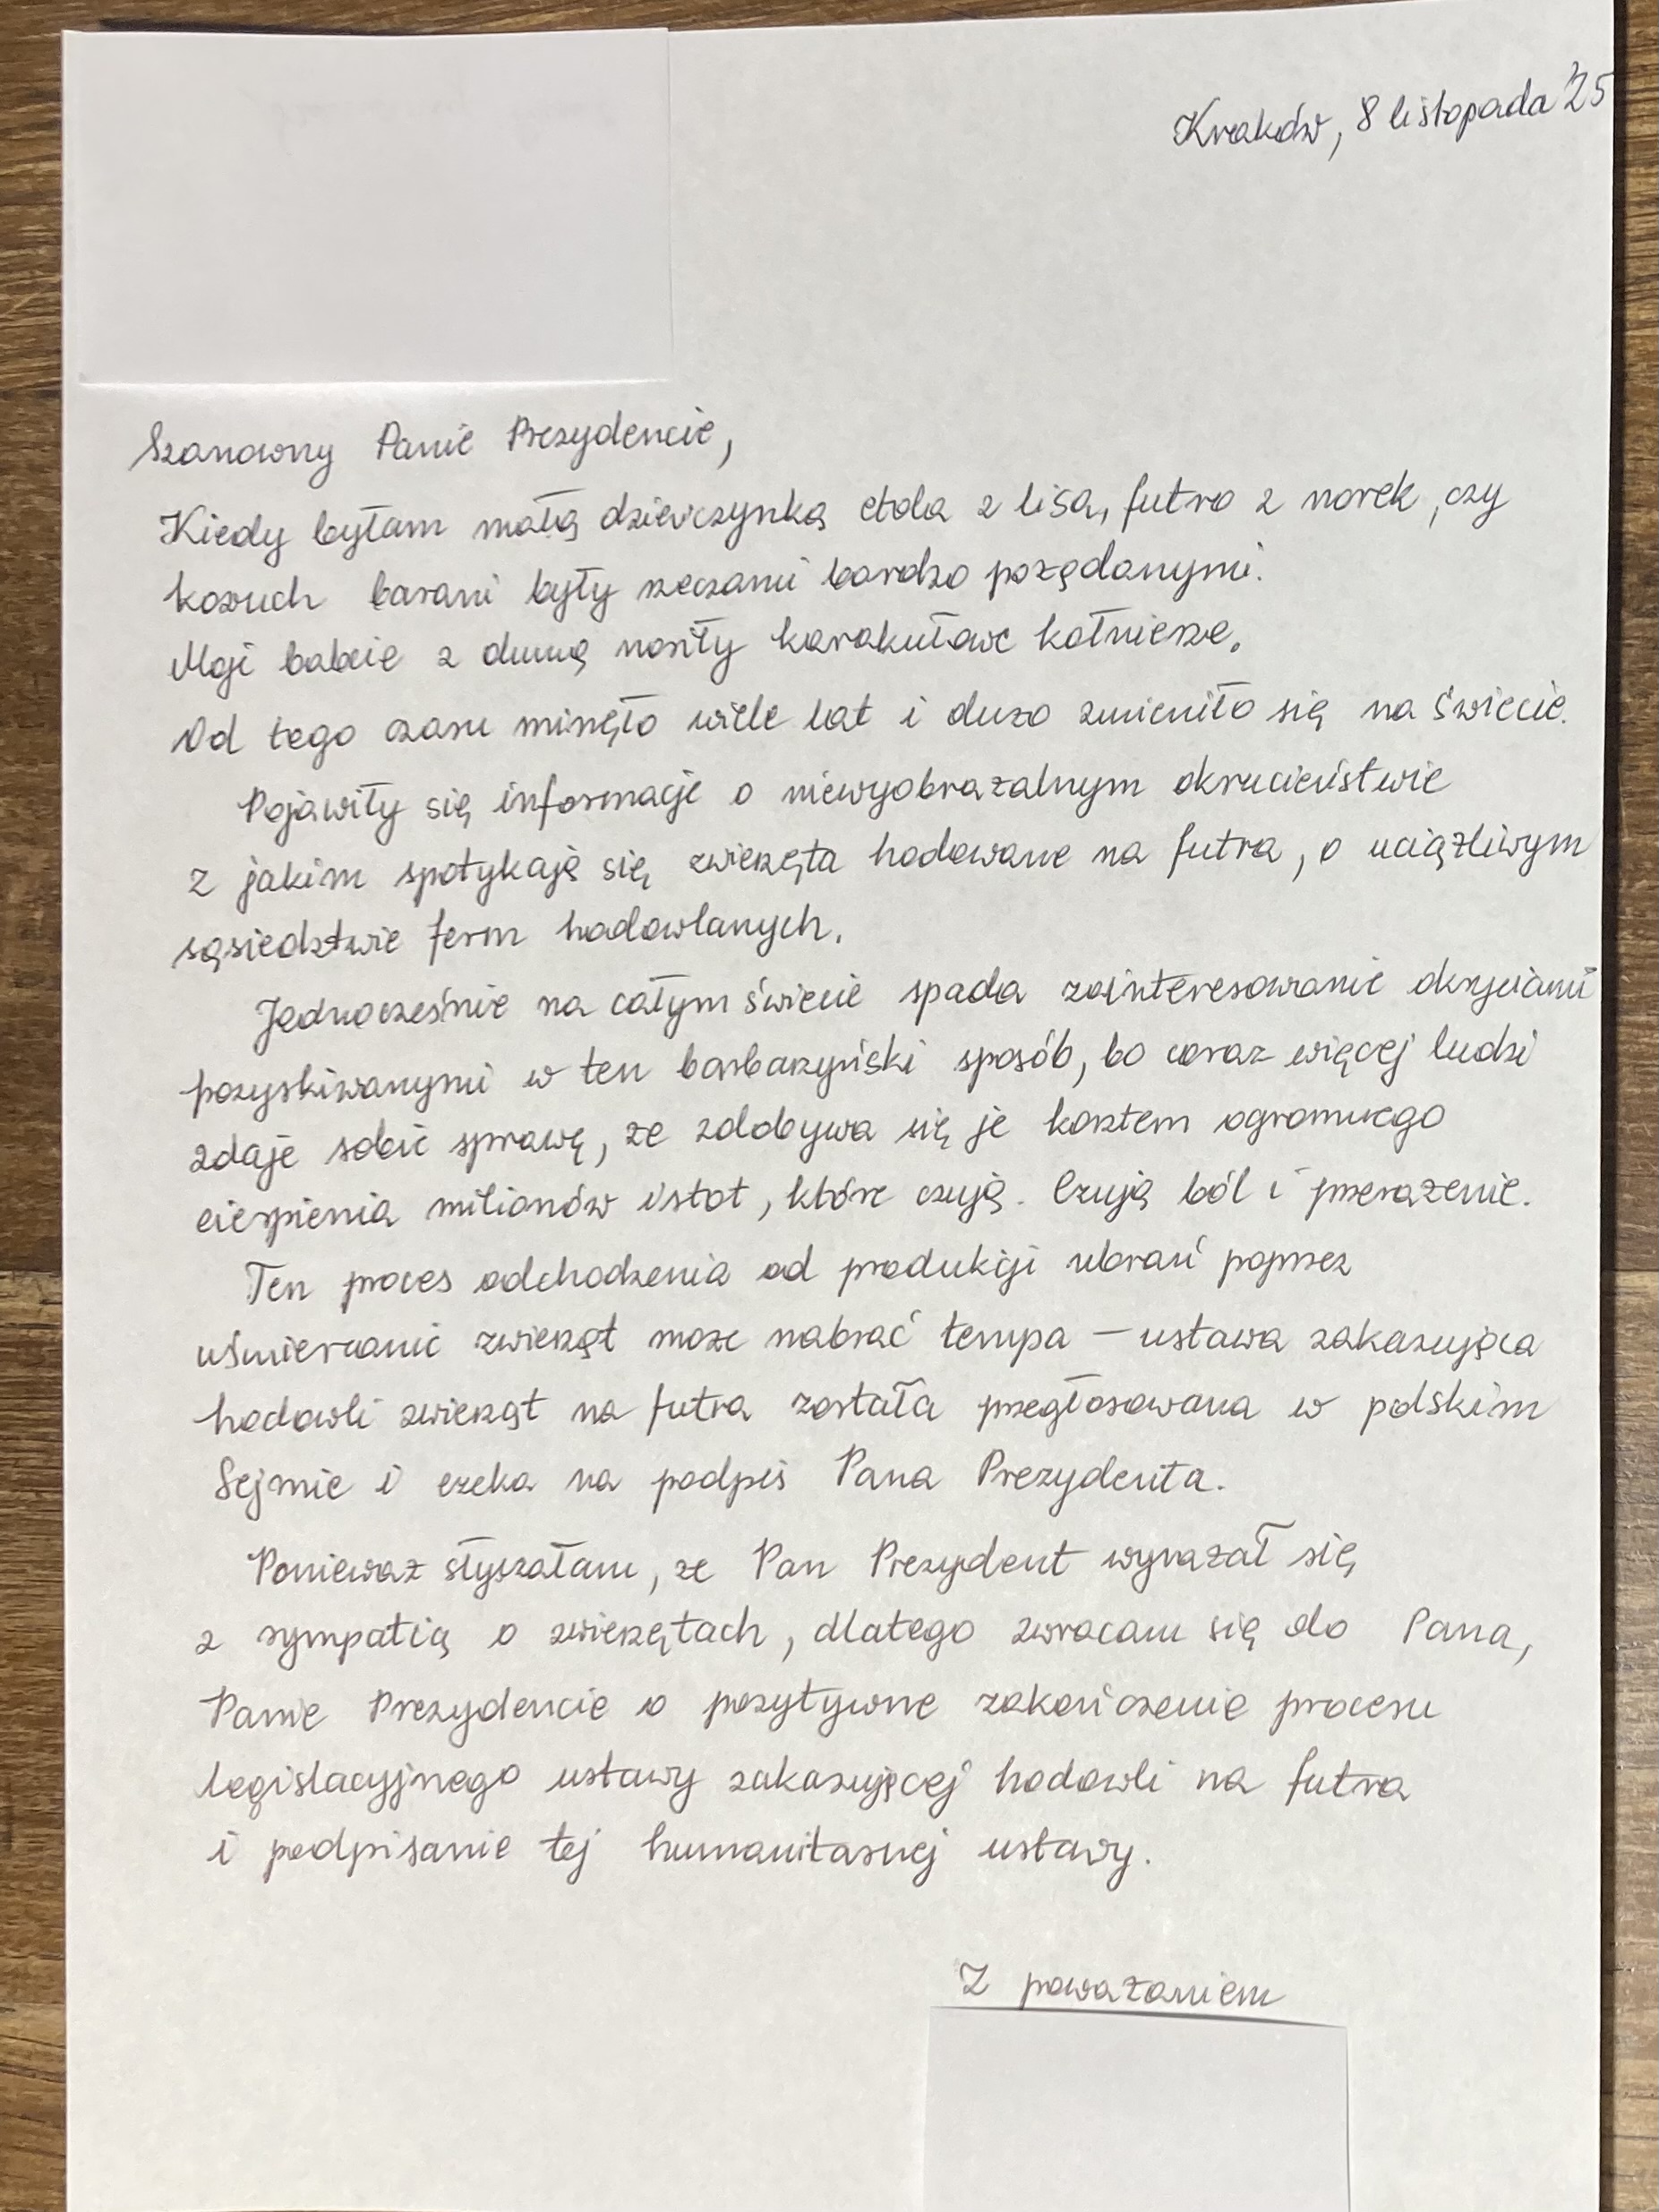 Kraków, 8 listopada '25
Szanowny Panie Prezydencie,
Kiedy byłam małą dziewczynką etola z lisa, futro z norek, czy
kożuch barani były rzeczami bardzo pożądanymi.
Moje babcie z dumą nosiły karakułowe kołnierze.
Od tego czasu minęło wiele lat i dużo zmieniło się na świecie.
Pojawiły się informacje o niewyobrażalnym okrucieństwie
z jakim spotykają się zwierzęta hodowane na futra, o uciążliwym
sąsiedztwie ferm hodowlanych.
Jednocześnie na całym świecie spada zainteresowanie okryciami
pozyskiwanymi w ten barbarzyński sposób, bo coraz więcej ludzi
zdaje sobie sprawę, że zdobywa się je kosztem ogromnego
cierpienia milionów istot, które czują. Czują ból i przerażenie.
Ten proces odchodzenia od produkcji ubrań poprzez
uśmiercanie zwierząt może nabrać tempa – ustawa zakazująca
hodowli zwierząt na futra została przegłosowana w polskim
Sejmie i czeka na podpis Pana Prezydenta.
Ponieważ słyszałam, że Pan Prezydent wyrażał się
z sympatią o zwierzętach, dlatego zwracam się do Pana,
Panie Prezydencie o pozytywne zakończenie procesu
legislacyjnego ustawy zakazującej hodowli na futra
i podpisanie tej humanitarnej ustawy.
Z poważaniem